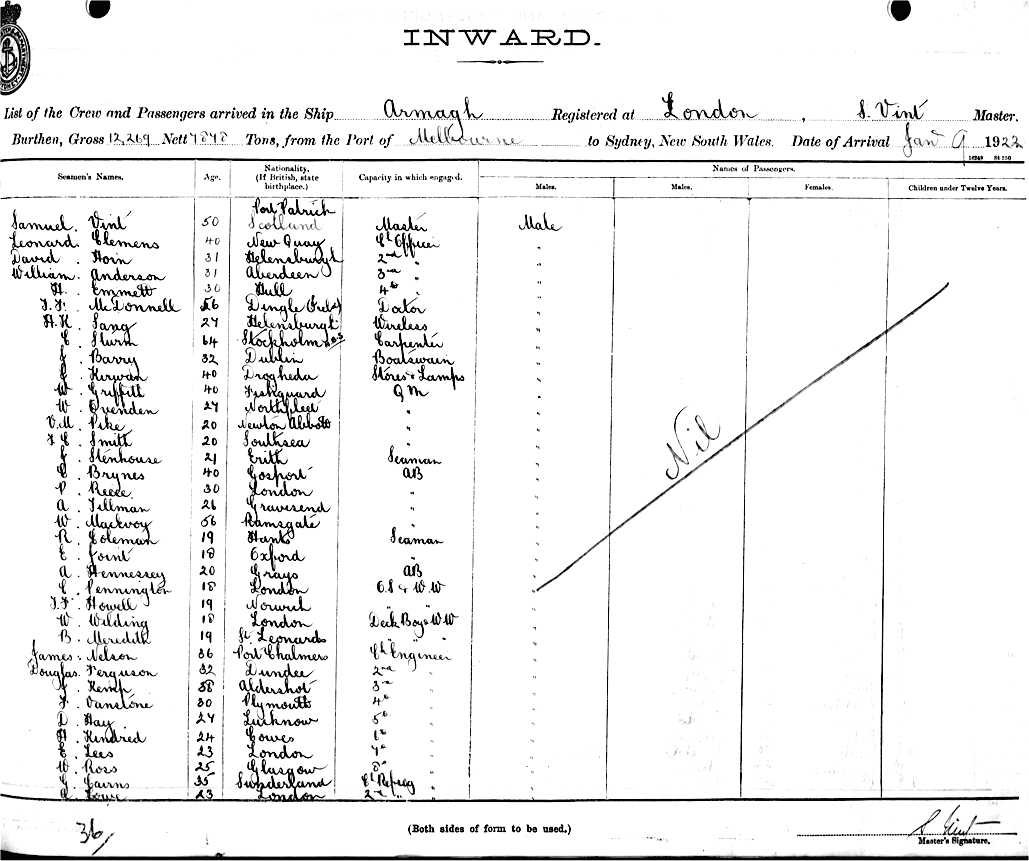 INWARD.
List of the Crew and Passengers arrived in the Ship Armagh Registered at London, S. Vint Master.
Burthen, Gross 12,269 Nett 7878 Tons, from the Port of Melbourne to Sydney, New South Wales. Date of Arrival Jan 9 1922
Seamen's Names. Age. Nationality. (If British, state birthplace.) Capacity in which engaged. Names of Passengers.
Males. Males. Females. Children under Twelve Years.
Port Patrick
Samuel. Vint 50 Scotland Master Male
Leonard. Clemens 40 New Quay Ch Officer "
David. Horn 31 Helensburgh 2nd " "
William. Anderson 31 Aberdeen 3rd " "
H. Emmett 30 Hull 4th "
McDonnell 56 Dingle Doctor "
H.K. Sang 27 Helensburgh Wireless "
C. Sturm 64 Stockholm Carpenter "
J. Barry 32 Dublin Boatswain "
Kirwan 40 Drogheda Stores & Lamps "
W. Griffith 40 Fishguard QM "
W. Ovenden 27 Northfleet " "
V.M. Pike 20 Newton Abbott " "
Smith 20 Southsea " "
J. Stenhouse 21 Erith Seaman "
C. Brynes 40 Gosport AB "
P. Reece. 30 London " "
A. Tillman 26 Gravesend " "
W. Mackvoy 56 Ramsgate " "
R. Coleman 19 Hunts Seaman "
E. Joint 18 Oxford " "
A. Hennessey 20 Grays AB "
C. Pennington 18 London O.S & W.W "
Howell 19 Norwich " "
W. Wilding 18 London Deck Boy & WW
B. Meredith 19 St. Leonards "
James. Nelson 36 Port Chalmers Ch Engineer
Douglas. Ferguson 32 Dundee 2nd "
J. Kemp 38 Aldershot 3rd "
F. Vanstone 30 Plymouth 4th "
D. Hay 27 Lucknow 5th "
H. Kindred 24 Cowes 6th "
E. Lees 23 London 7th "
W. Ross 25 Glasgow 8th "
G. Cairns 35 Sunderland Ch Refreg
A. Lowe 23 London 2nd "
Nil
36/
(Both sides of form to be used.)
S Vint
Master's Signature.